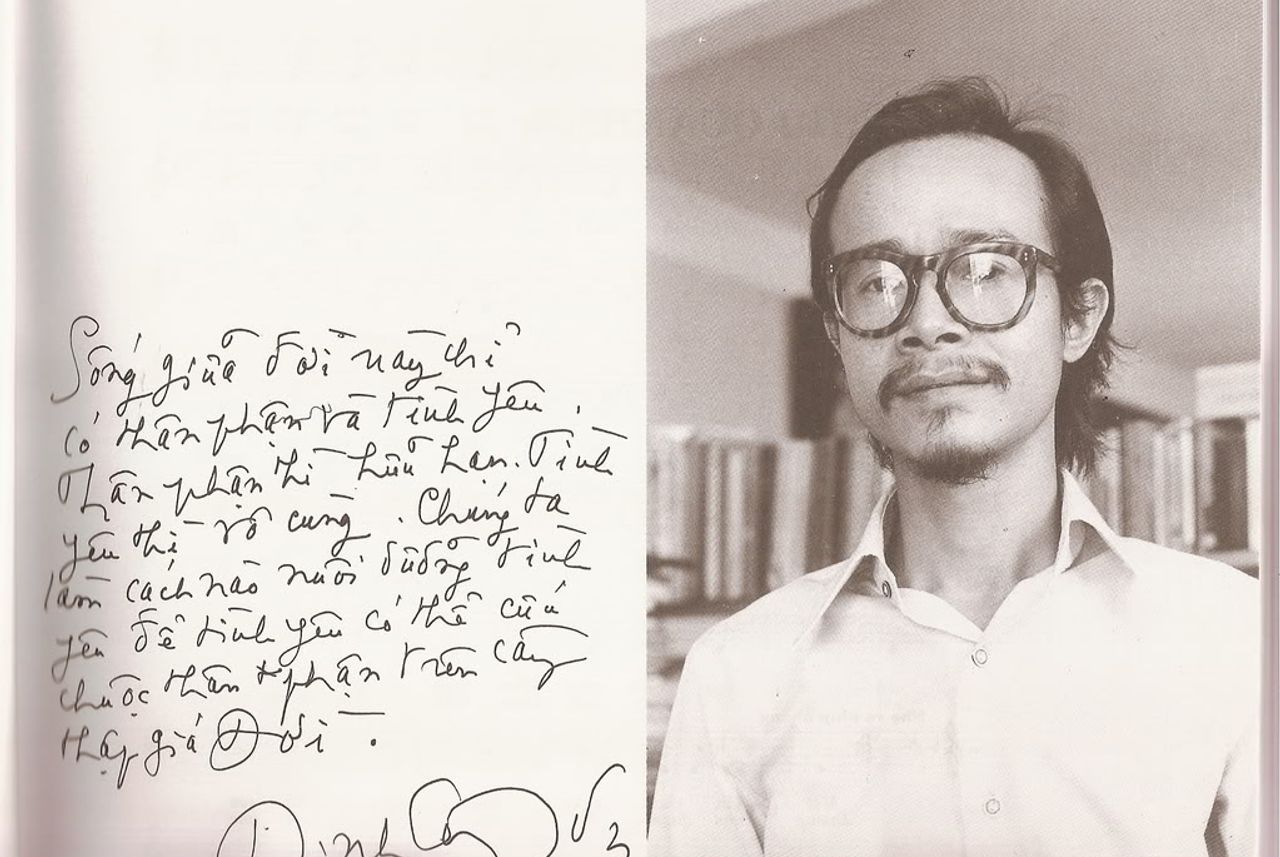 Sống giữa đời này chỉ
có thân phận và tình yêu.
Thân phận thì hữu hạn. Tình
yêu thì vô cùng. Chúng ta
làm cách nào nuôi dưỡng tình
yêu để tình yêu có thể cứu
chuộc thân phận trên cây
thập giá Đời.